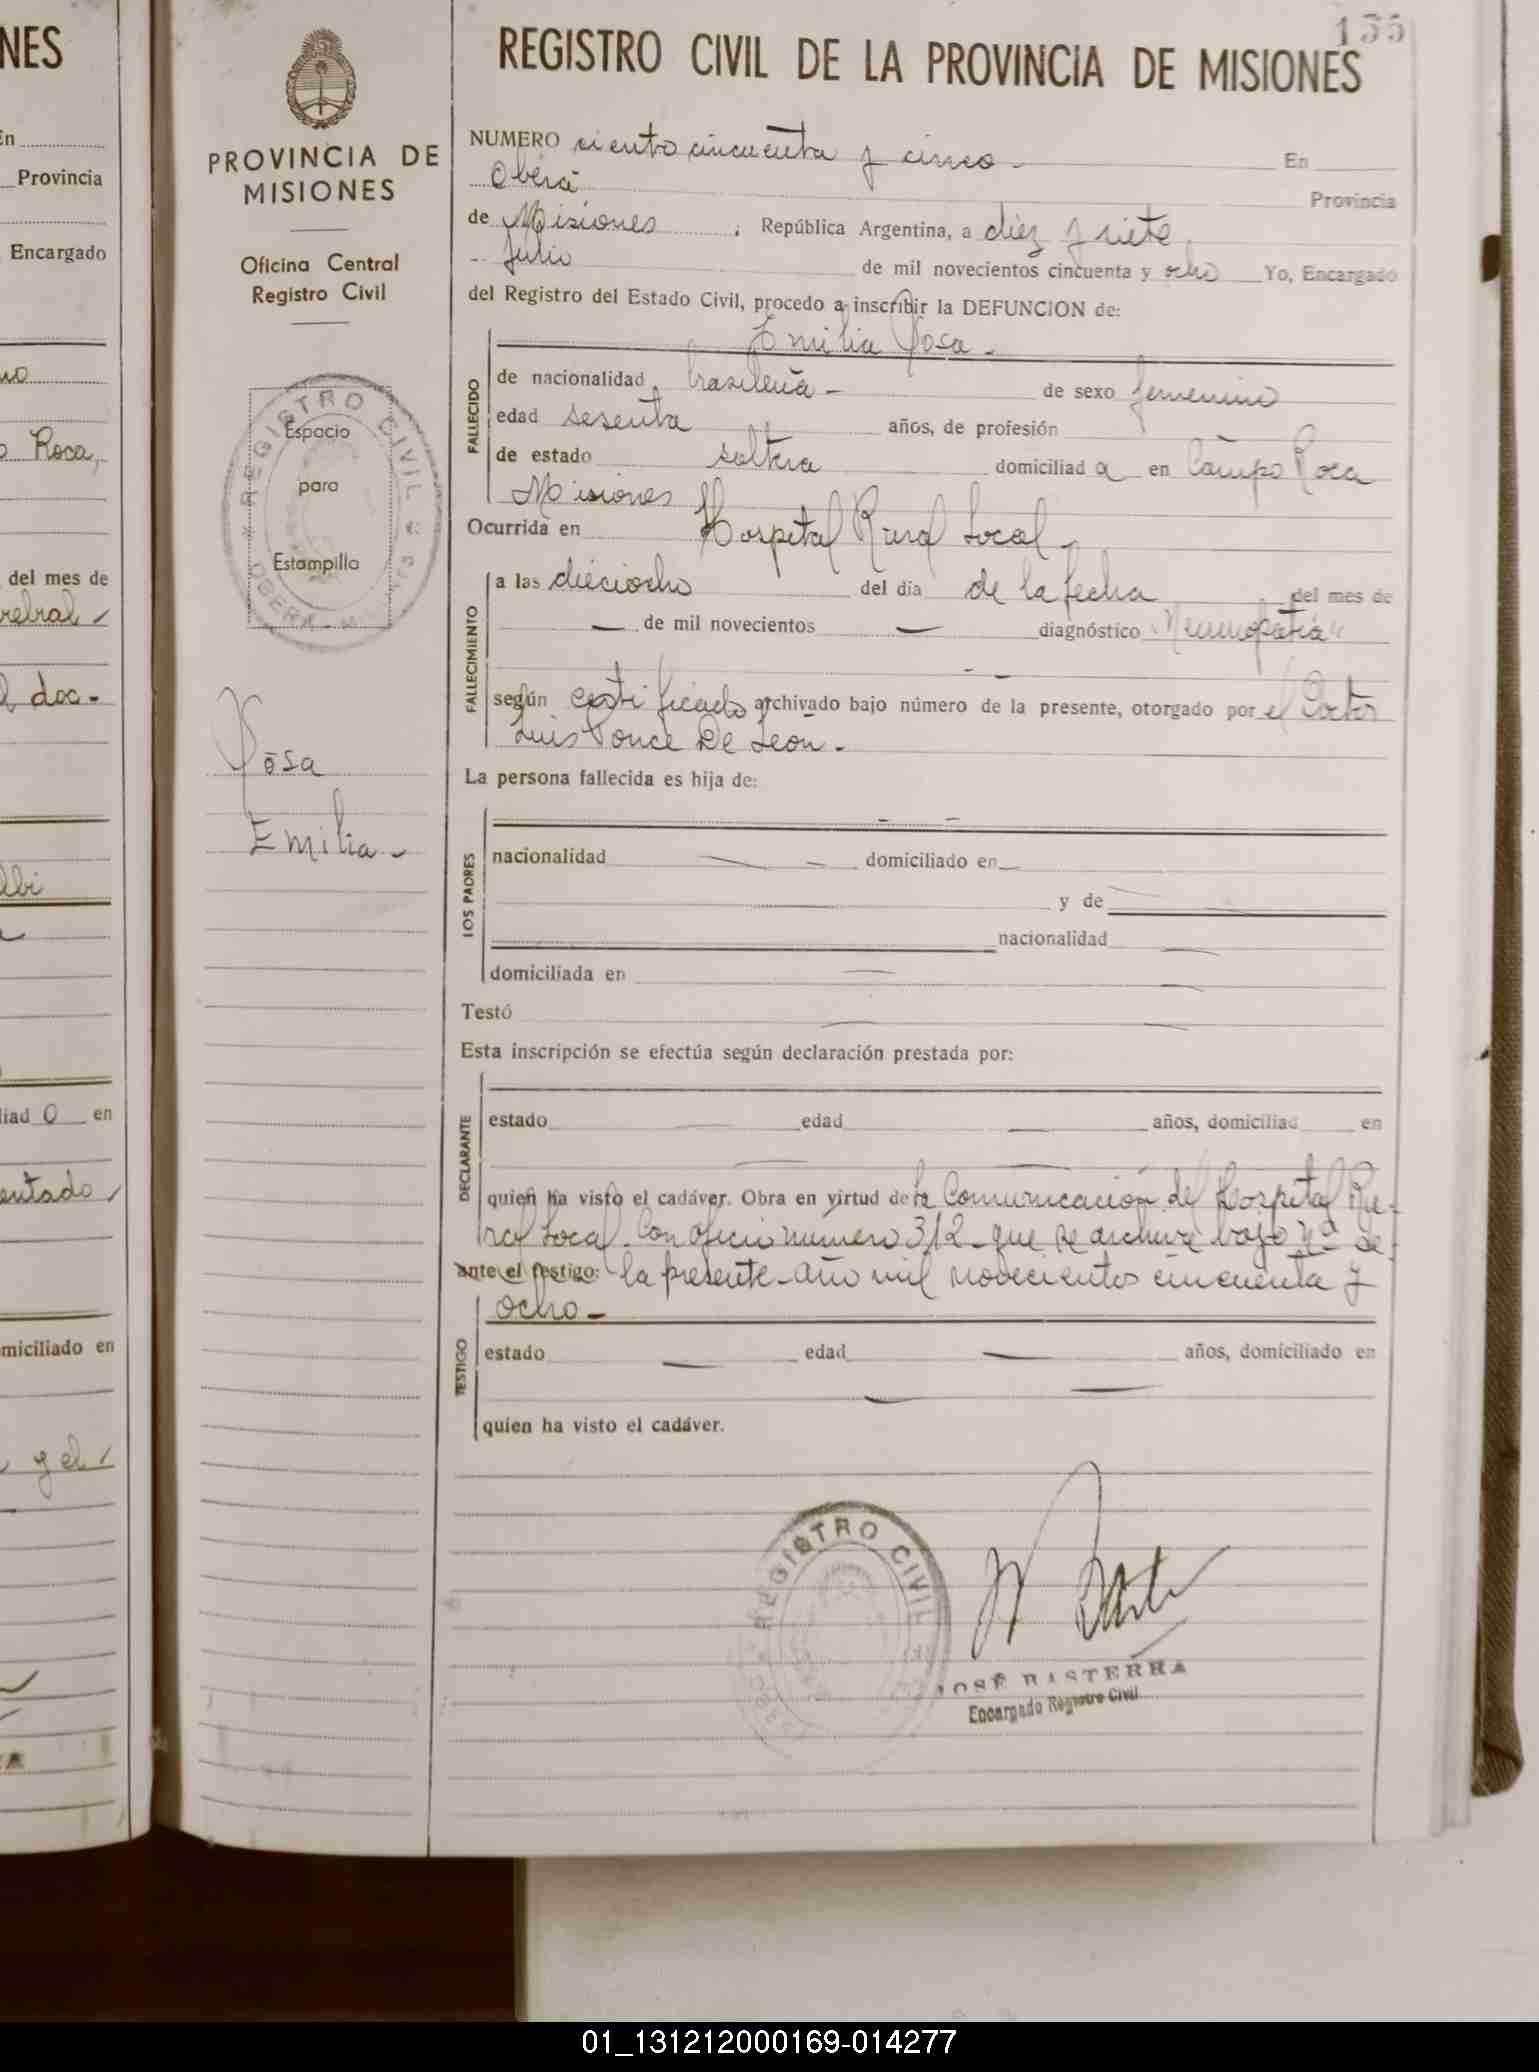 NES
En
Provincia
Encargado
no
Roca,
del mes de
rebral
doc-
lbi
liad o en
entado
miciliado en
y el
155
REGISTRO CIVIL DE LA PROVINCIA DE MISIONES
PROVINCIA DE
MISIONES
Oficina Central
Registro Civil
REGISTRO CIVIL
OBERA
Espacio
para
Estampilla
Rosa
Emilia -
NUMERO ciento cincuenta y cinco - En
Oberá Provincia
de Misiones, República Argentina, a diez y siete
- Julio de mil novecientos cincuenta y ocho Yo, Encargado
del Registro del Estado Civil, procedo a inscribir la DEFUNCION de:
Emilia Rosa -
FALLECIDO
de nacionalidad brasileña - de sexo femenino
edad sesenta años, de profesión
de estado soltera domiciliad a en Campo Roca
Misiones
Ocurrida en Hospital Rural Local -
FALLECIMIENTO
a las dieciocho del día de la fecha del mes de
— de mil novecientos — diagnóstico "Neumopatía"
- -
según certificado archivado bajo número de la presente, otorgado por el Doctor
Luis Ponce De León -
La persona fallecida es hija de:
LOS PADRES
- -
nacionalidad — - domiciliado en
y de —
nacionalidad —
domiciliada en — —
Testó — —
Esta inscripción se efectúa según declaración prestada por:
DECLARANTE
estado — edad — años, domiciliad en
— —
quien ha visto el cadáver. Obra en virtud de la Comunicación del Hospital Ru-
ral Local Con oficio número 312 - que se archiva bajo nº de
ante el testigo: la presente año mil novecientos cincuenta y
ocho -
TESTIGO
estado — edad — años, domiciliado en
— —
quien ha visto el cadáver.
REGISTRO CIVIL
JOSÉ BASTERRA
Encargado Registro Civil
01_131212000169-014277